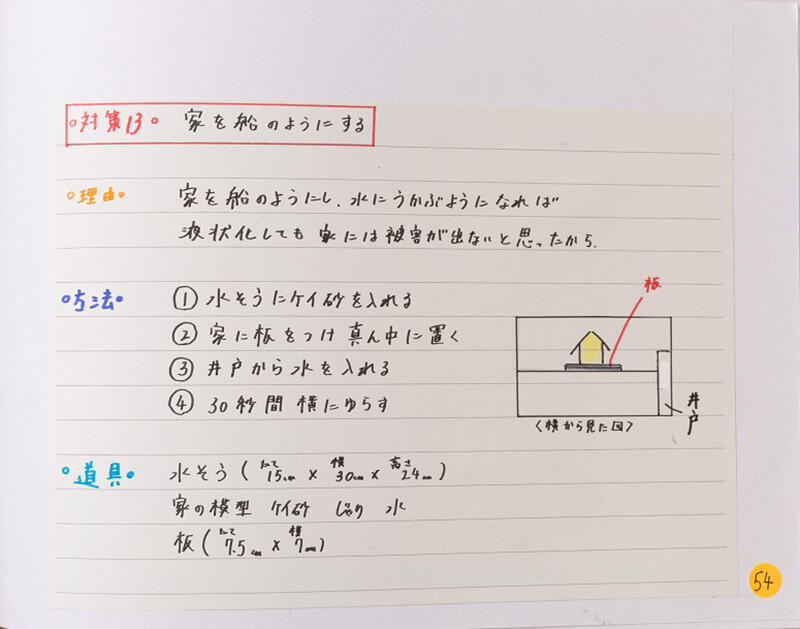 ○対策13○ 家を船のようにする
○理由○ 家を船のようにし、水にうかぶようになれば
液状化しても家には被害が出ないと思ったから.
○方法○ ① 水そうにケイ砂を入れる
② 家に板をつけ真ん中に置く
③ 井戸から水を入れる
④ 30秒間横にゆらす
板
井戸
〈横から見た図〉
○道具○ 水そう(たて15cm×横30cm×高さ24cm)
家の模型 ケイ砂 じゃり 水
板(たて7.5cm×横7cm)
54